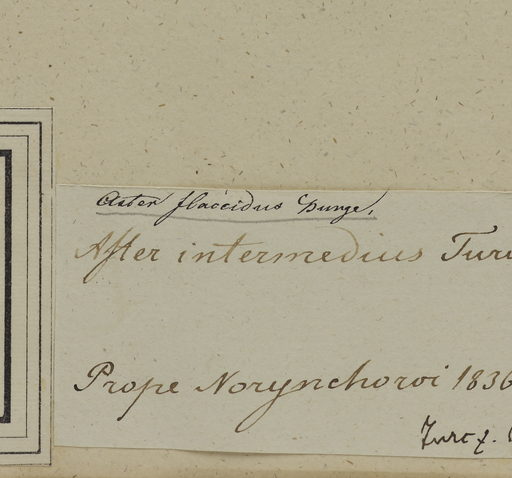 Aster flaccidus Bunge,
After intermedius Tur
Prope Norynchoroi 1836
Turcz.